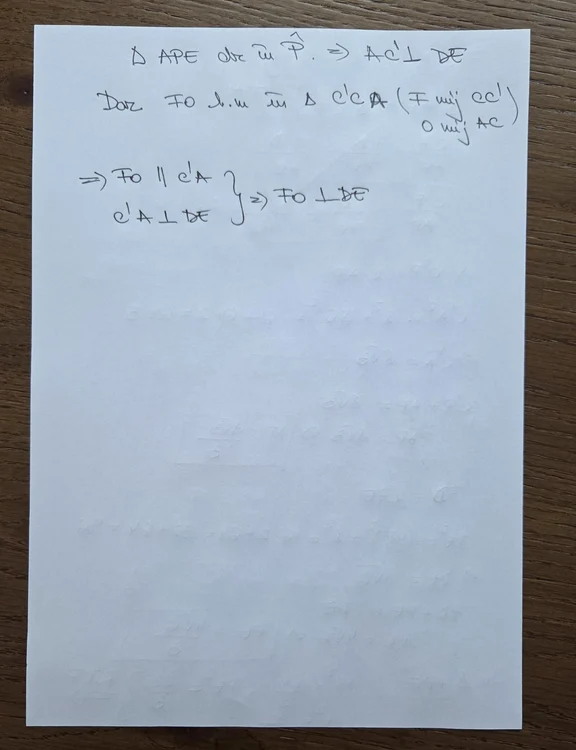 Δ APE dr. în P̂. ⇒ AC' ⊥ DE
Dar FO l.m în Δ C'CA (F mij CC'
O mij AC)
⇒ FO || C'A
C'A ⊥ DE } ⇒ FO ⊥ DE